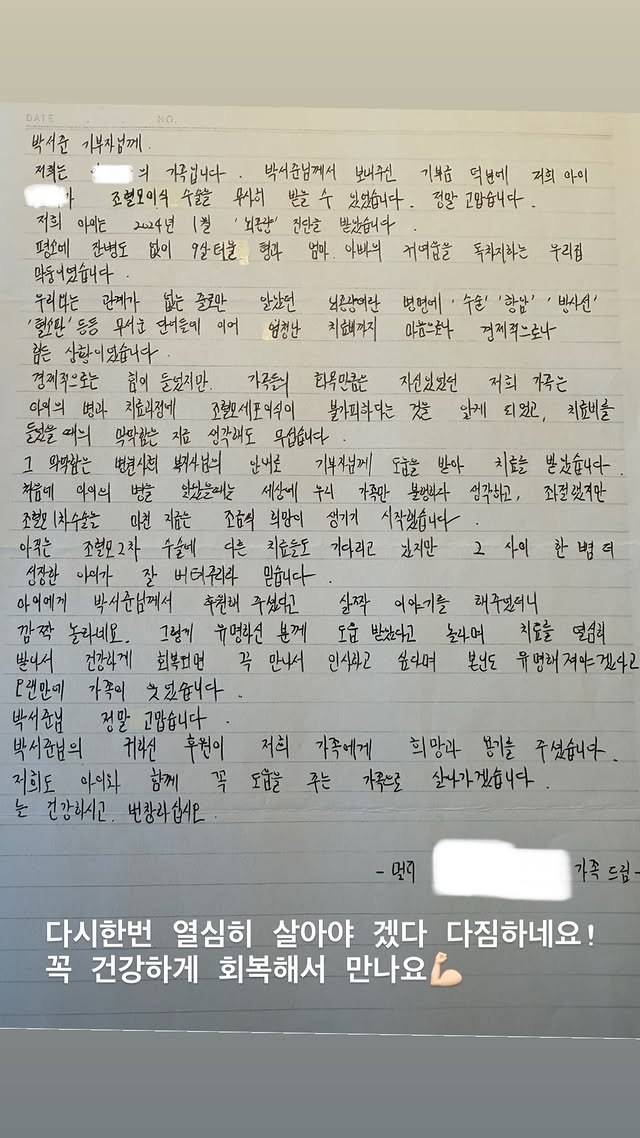 DATE . . NO.
박서준 기부자님께.
저희는 의 가족입니다. 박서준님께서 보내주신 기부금 덕분에 저희 아이
가 조혈모이식 수술을 무사히 받을 수 있었습니다. 정말 고맙습니다.
저희 아이는 2024년 1월 '뇌종양' 진단을 받았습니다.
평소에 잔병도 없이 9살터울 형과 엄마, 아빠의 귀여움을 독차지하는 우리집
막둥이였습니다.
우리와는 관계가 없는 줄로만 알았던 뇌종양이란 병명에 '수술' '항암' '방사선'
'혈소판' 등등 무서운 단어들에 이어 엄청난 치료비까지 마음으로나 경제적으로나
힘든 상황이었습니다.
경제적으로는 힘이 들었지만, 가족들의 화목만큼은 자신있었던 저희 가족은
아이의 병과 치료과정에 조혈모세포이식이 불가피하다는 것을 알게 되었고, 치료비를
들었을 때의 막막함은 지금 생각해도 무섭습니다.
그 막막함은 병원사회 복지사님의 안내로 기부자님께 도움을 받아 치료를 받았습니다.
처음에 아이의 병을 알았을때는 세상에 우리 가족만 불행하다 생각하고, 좌절했지만
조혈모1차수술을 마친 지금은 조금씩 희망이 생기기 시작했습니다.
아직은 조혈모2차 수술에 다른 치료들도 기다리고 있지만 그 사이 한 뼘 더
성장한 아이가 잘 버텨주리라 믿습니다.
아이에게 박서준님께서 후원해 주셨다고 살짝 이야기를 해주었더니
깜짝 놀라네요. 그렇게 유명하신 분께 도움 받았다고 놀라며 치료를 열심히
받아서 건강하게 회복되면 꼭 만나서 인사하고 싶다며 본인도 유명해져야겠다고
오랜만에 가족이 웃었습니다.
박서준님 정말 고맙습니다.
박서준님의 귀하신 후원이 저희 가족에게 희망과 용기를 주셨습니다.
저희도 아이와 함께 꼭 도움을 주는 가족으로 살아가겠습니다.
늘 건강하시고, 번창하십시오.
- 멀리 가족 드림-
다시한번 열심히 살아야 겠다 다짐하네요!
꼭 건강하게 회복해서 만나요💪🏻